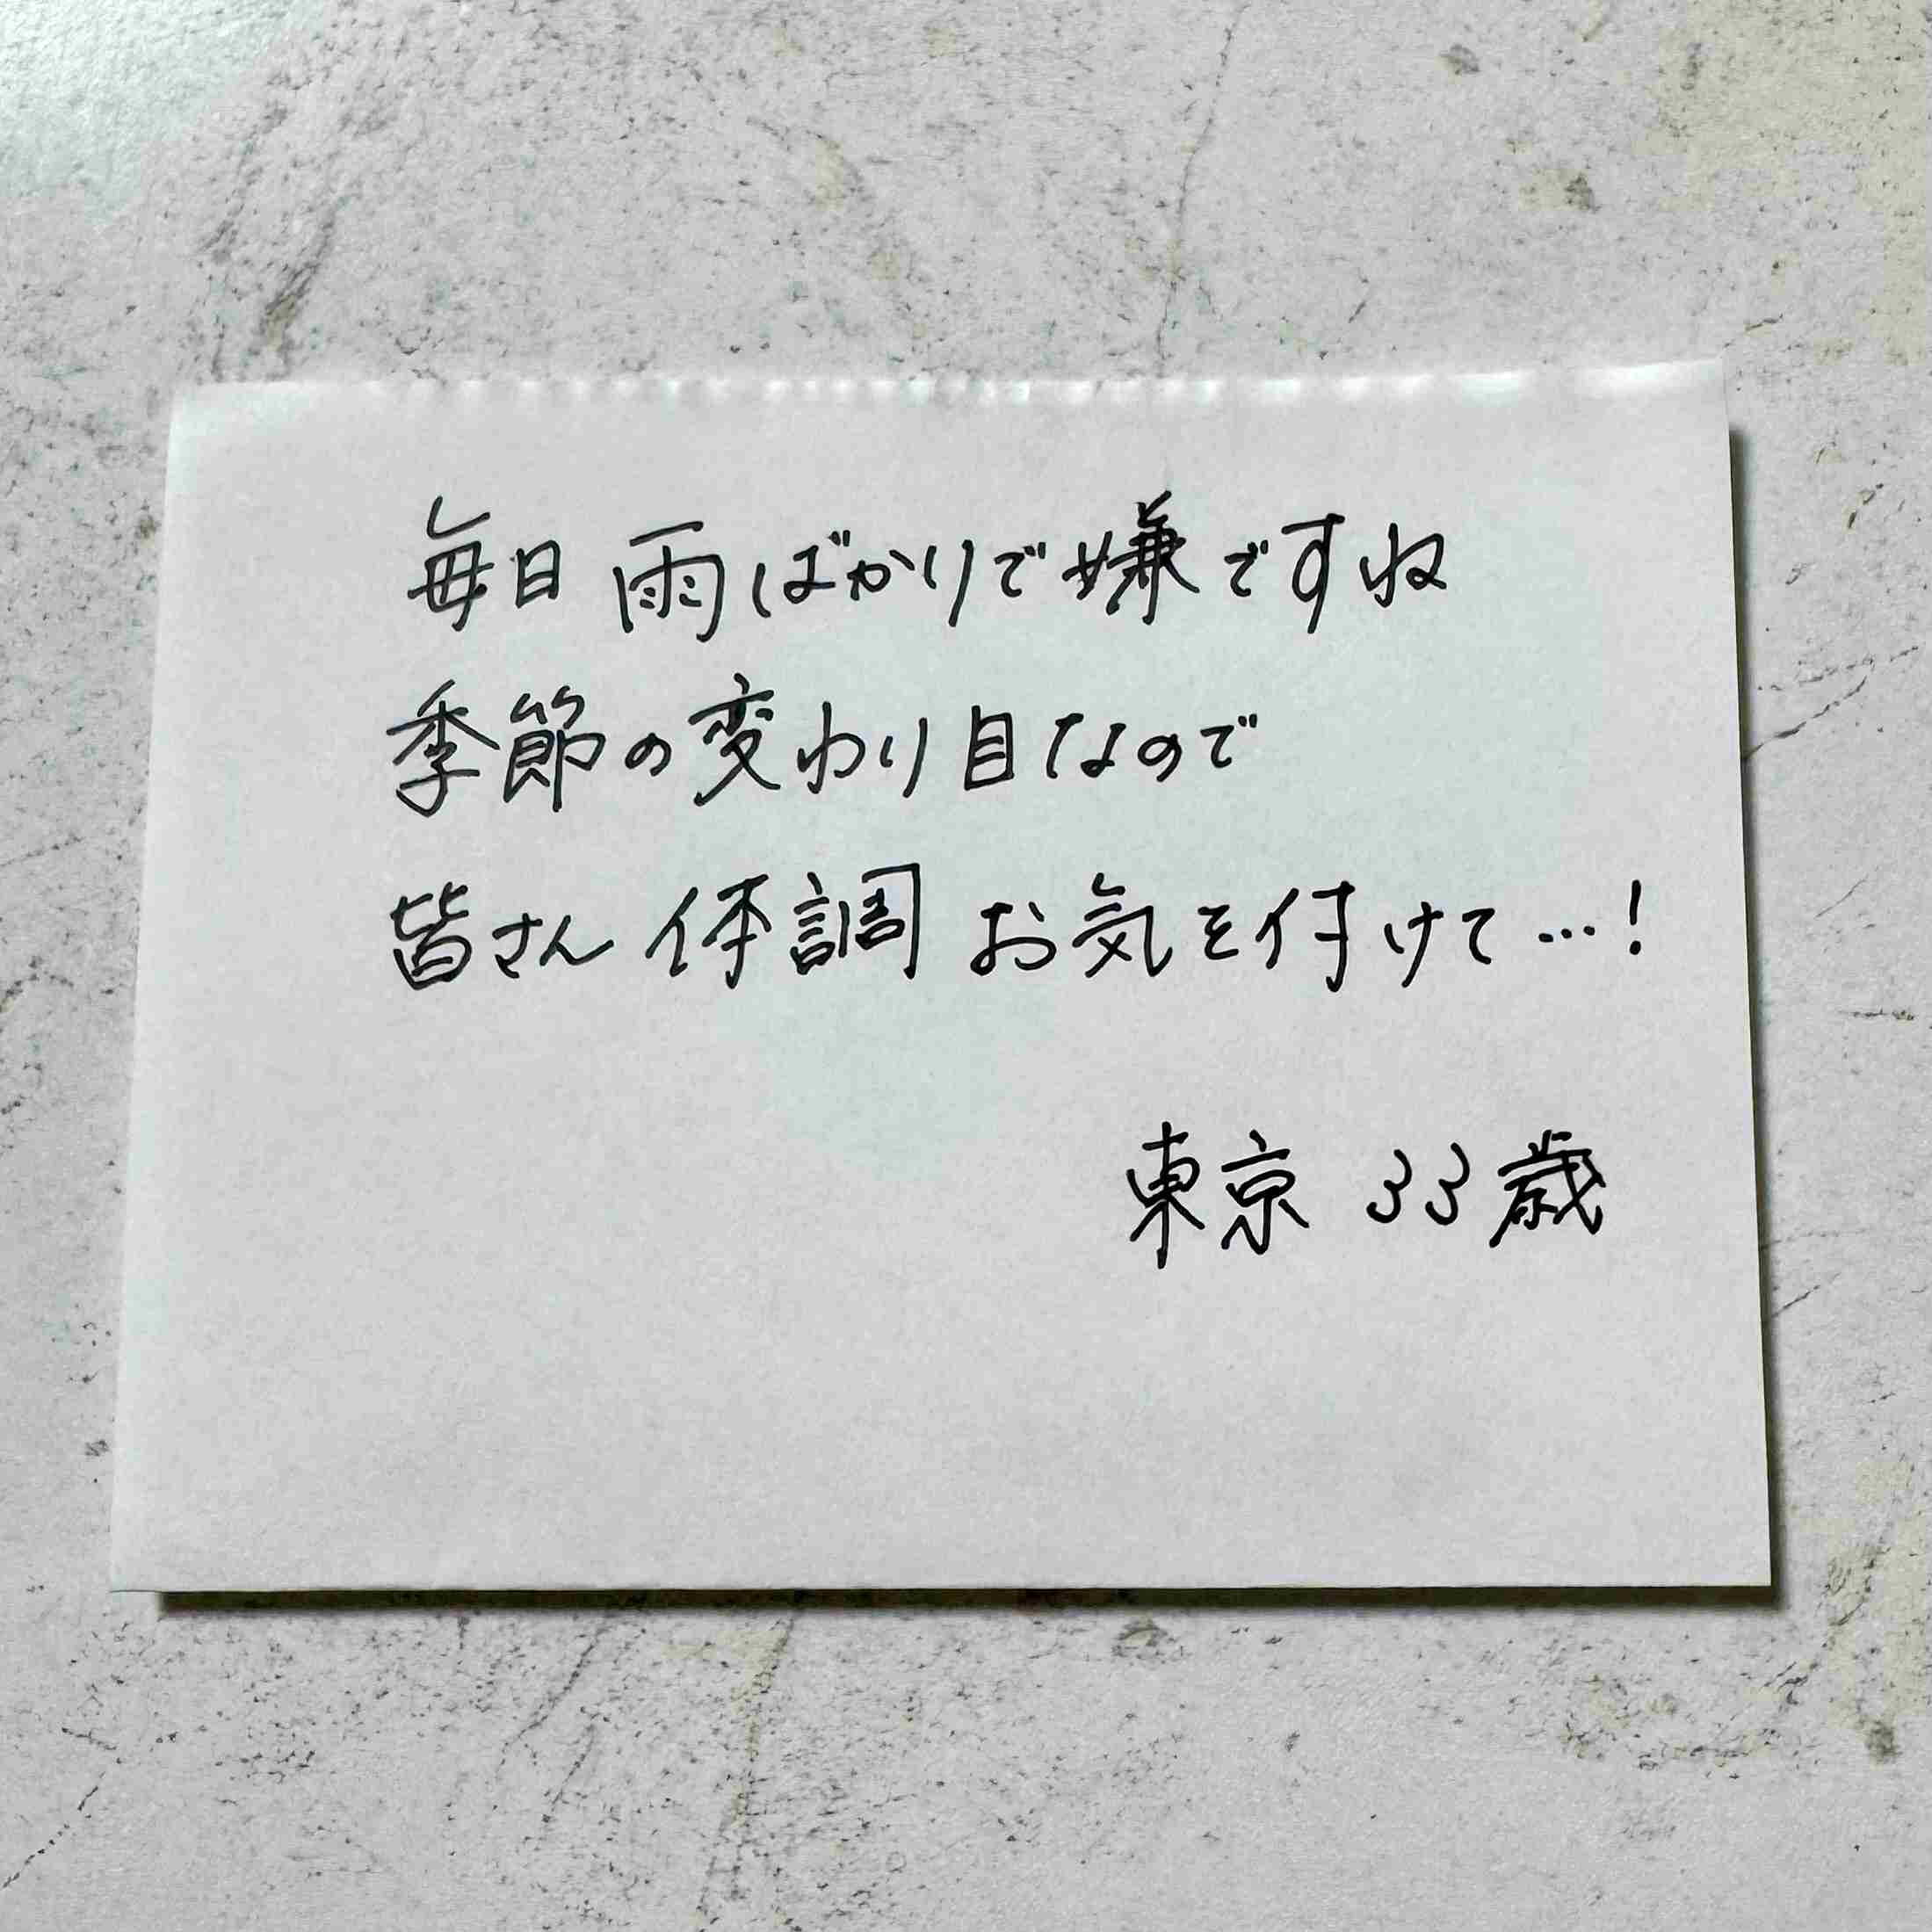 毎日雨ばかりで嫌ですね
季節の変わり目なので
皆さん 体調 お気を付けて…!
東京 33歳